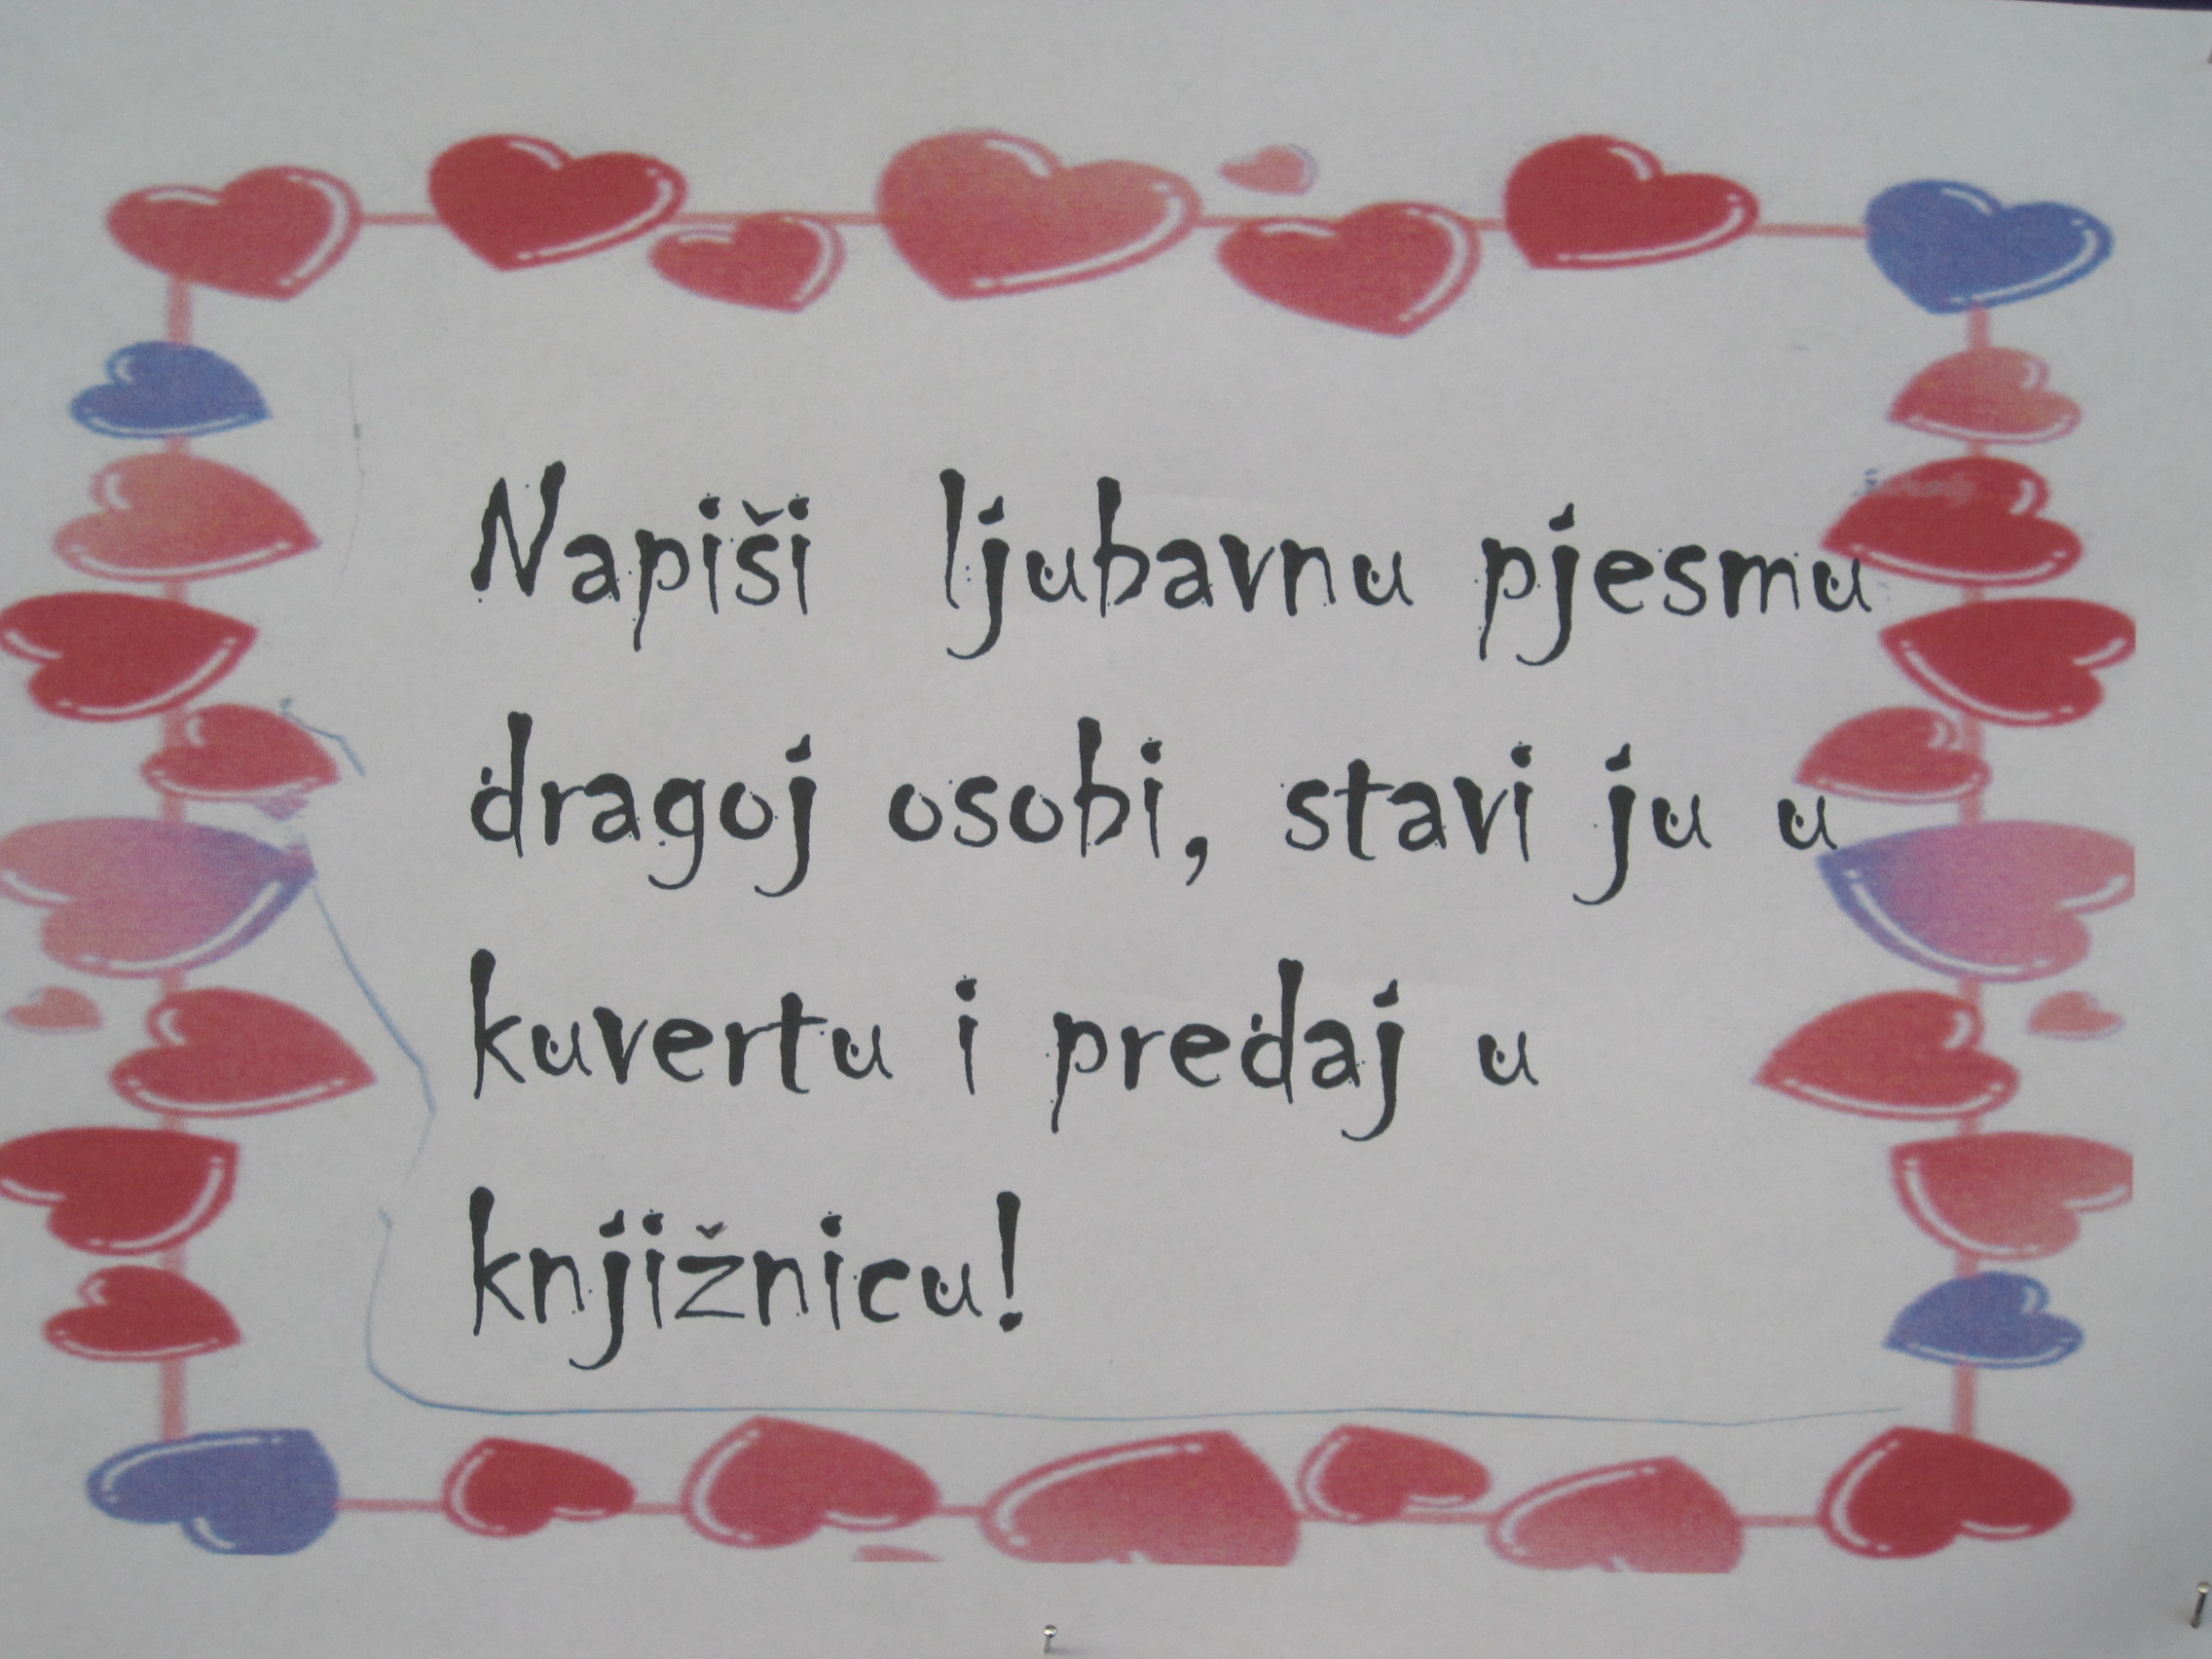 Napiši ljubavnu pjesmu
dragoj osobi, stavi ju u
kuvertu i predaj u
knjižnicu!